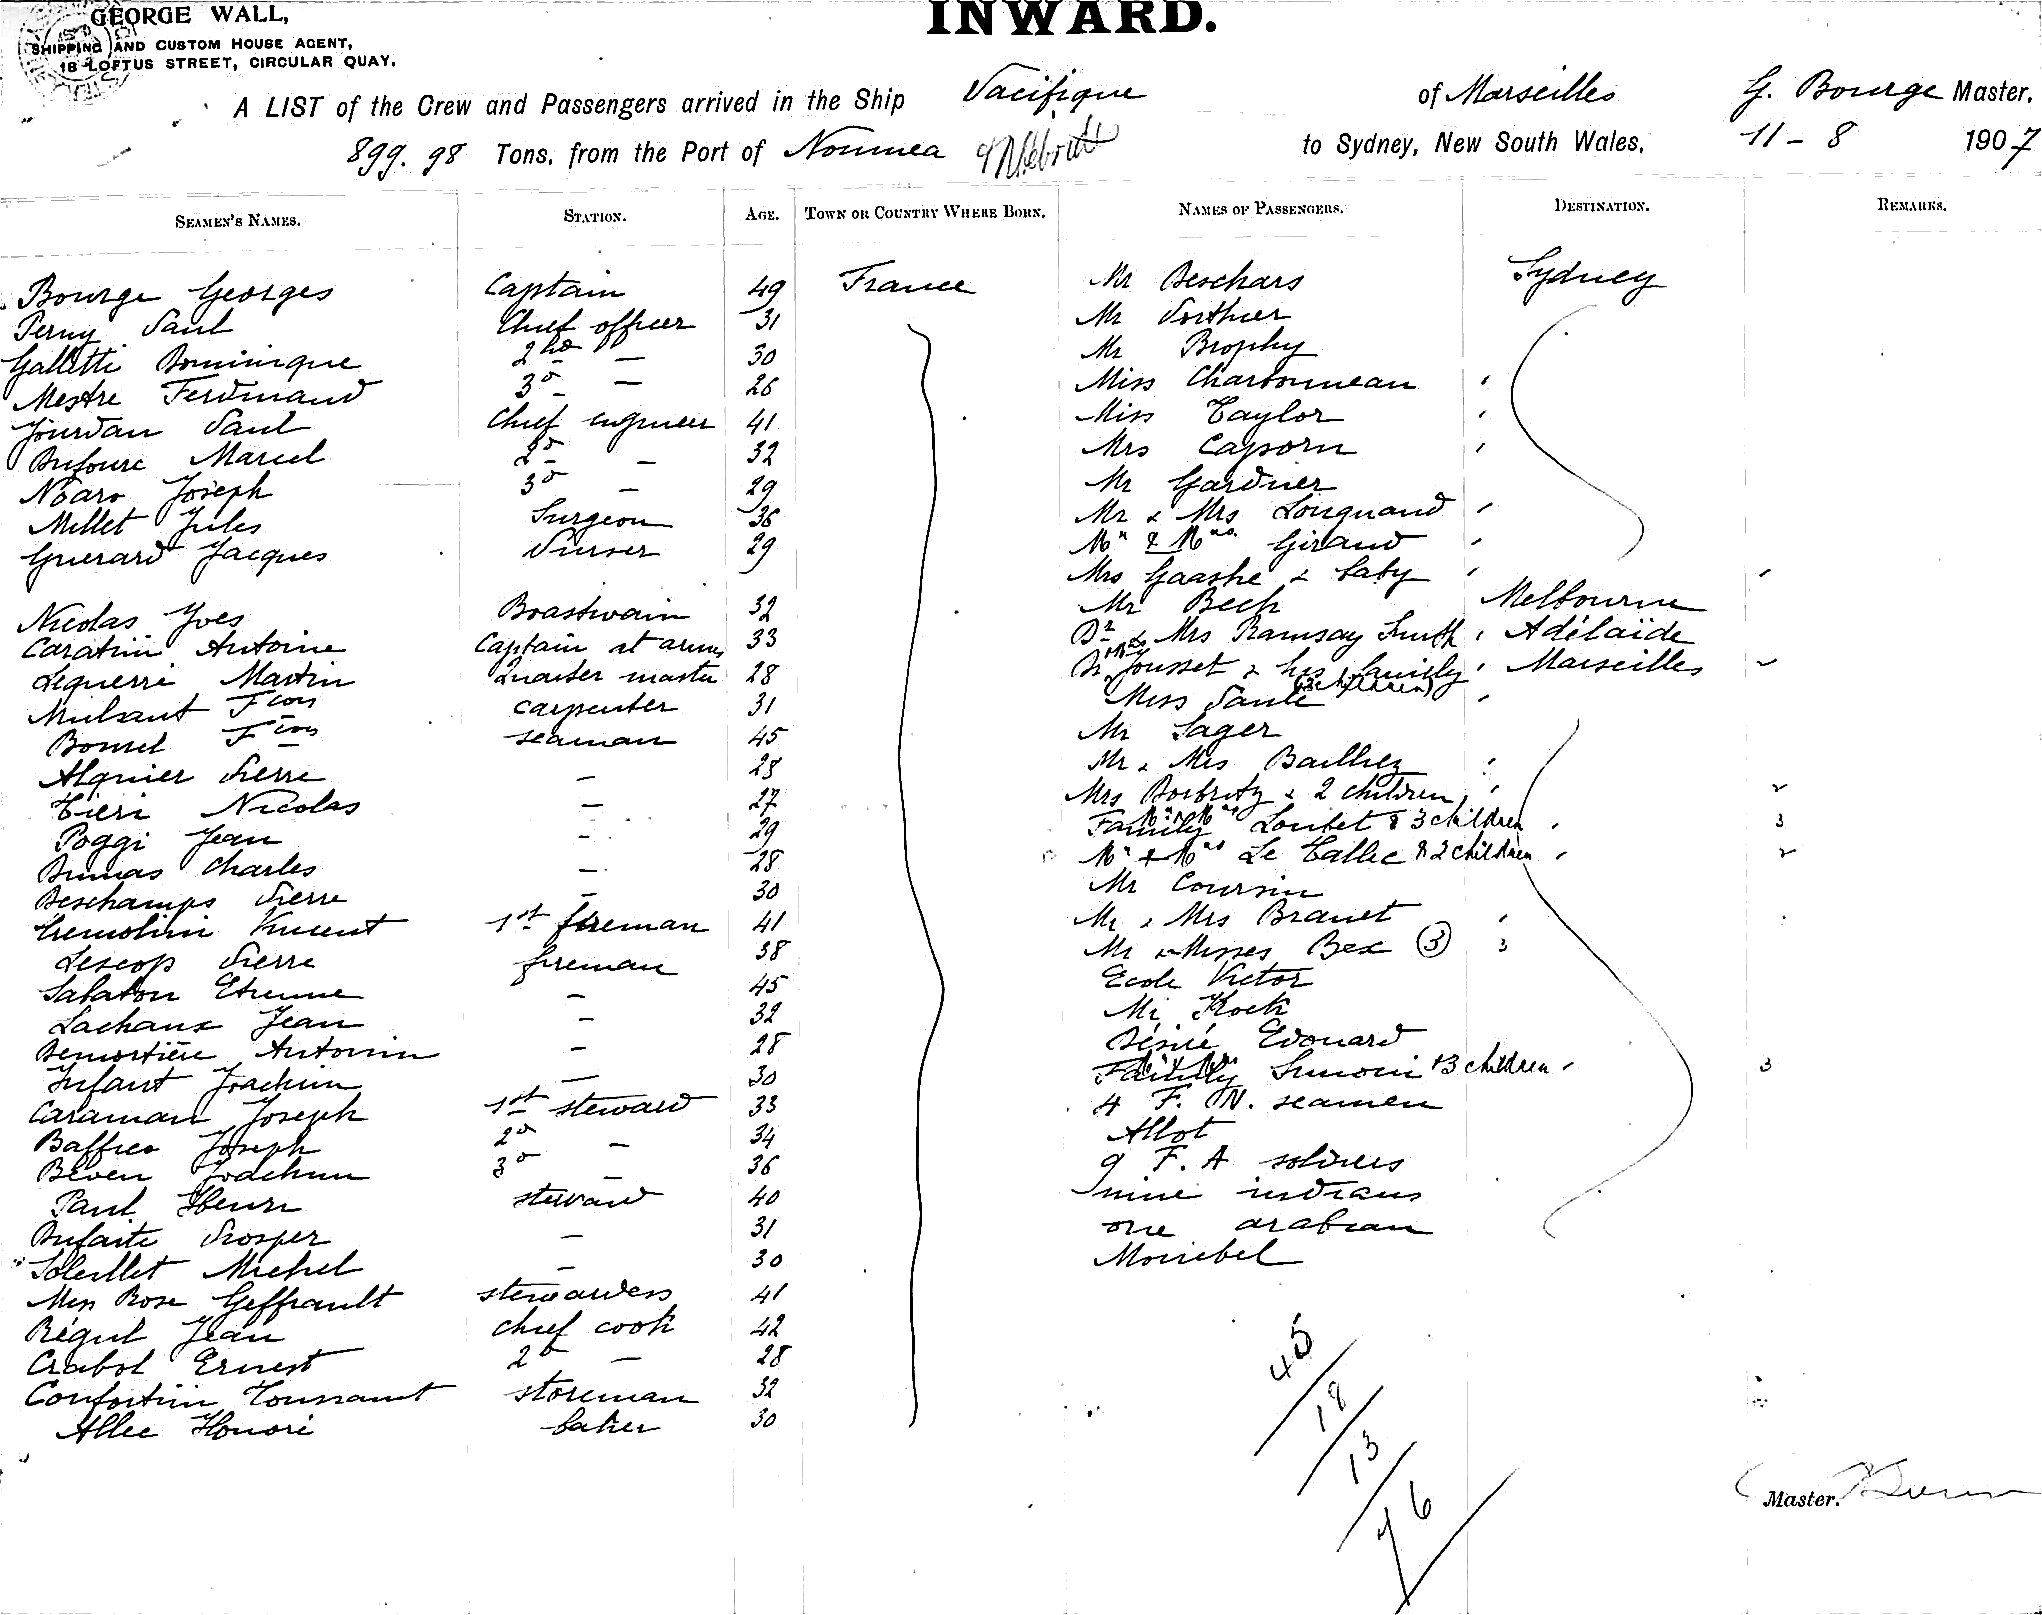 GEORGE WALL,
SHIPPING AND CUSTOM HOUSE AGENT,
18 LOFTUS STREET, CIRCULAR QUAY.
INWARD.
A LIST of the Crew and Passengers arrived in the Ship Pacifique of Marseilles G. Bourge Master.
899.98 Tons, from the Port of Noumea to Sydney, New South Wales, 11 - 8 1907
SEAMEN'S NAMES. STATION. AGE. TOWN OR COUNTRY WHERE BORN. NAMES OF PASSENGERS. DESTINATION. REMARKS.
Bourge Georges Captain 49 France Mr Deschars Sydney
Perny Paul Chief officer 31 Mr Porthier
Galletti Dominique 2nd — 30 Mr Brophy
Mestre Ferdinand 3d — 26 Miss Charbonneau
Jourdan Paul Chief engineer 41 Miss Taylor
Dufourc Marcel 2d — 32 Mrs Caporn
Noaro Joseph 3d — 29 Mr Gardner
Millet Jules Surgeon 36 Mr & Mrs Longuand
Guerard Jacques Purser 29 Mr & Mrs Giraud
Mrs Gaashe & baby
Nicolas Yves Boastwain 32 Mr Bech Melbourne
Caratini Antoine Captain at arms 33 Dr & Mrs Ramsay Smith Adélaïde
Leguerré Martin Quarter master 28 Jousset & his family (2 children) Marseilles 2
Mulsant Fcois carpenter 31 Miss Paule
Bonnel Fcois seaman 45 Mr Sager
Alquier Pierre — 28 Mr & Mrs Bailhez
Tieri Nicolas — 27 Mrs Boebritz & 2 children 2
Poggi Jean — 29 Family Loubet & 3 children 3
Dumas Charles — 28 Mr & Mrs Le Tallec & 2 children 2
Deschamps Pierre — 30 Mr Coursin
Tremolini Vincent 1st fireman 41 Mr & Mrs Branet
Lescop Pierre fireman 38 Mr & Misses Bex 3 3
Sabaton Etienne — 45 Ecole Victor
Lachaux Jean — 32 Mr Kock
Demortière Antonin — 28 Désiré Edouard
Infant Joachim — 30 Family Simoni & 3 children 3
Caraman Joseph 1st steward 33 4 F. N. seamen
Baffico Joseph 2d — 34 Allot
Beven Joachim 3d — 36 9 F. A soldiers
Paul Henri steward 40 nine indians
Dufaite Prosper — 31 one arabian
Soleillet Michel — 30 Moriebel
Mrs Rose Geffrault stewardess 41
Régul Jean chief cook 42
Crabol Ernest 2d — 28
Confortini Toussaint storeman 32
Allec Honoré baker 30
45
18
13
76
Master.